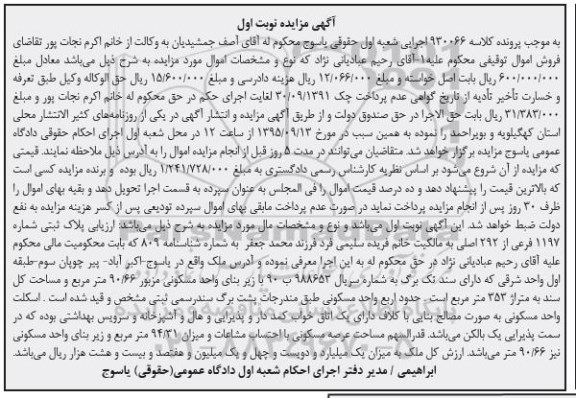 آگهی مزایده نوبت اول
به موجب پرونده کلاسه ۹۳۰۰۶۶ اجرایی شعبه اول حقوقی یاسوج محکوم له آقای آصف جمشیدیان به وکالت از خانم اکرم نجات پور تقاضای
فروش اموال توقیفی محکوم علیه ۱-آقای رحیم عبادیانی نژاد که نوع و مشخصات اموال مورد مزایده به شرح ذیل می‌باشد معادل مبلغ
۶۰۰/۰۰۰/۰۰۰ ریال بابت اصل خواسته و مبلغ ۱۲/۰۶۶/۰۰۰ ریال هزینه دادرسی و مبلغ ۱۵/۶۰۰/۰۰۰ ریال حق الوکاله وکیل طبق تعرفه
و خسارت تأخیر تأدیه از تاریخ گواهی عدم پرداخت چک ۳۰/۰۹/۱۳۹۱ لغایت اجرای حکم در حق محکوم له خانم اکرم نجات پور و مبلغ
۳۱/۳۸۳/۰۰۰ ریال بابت حق الاجرا در حق صندوق دولت و از طریق آگهی مزایده و انتشار آگهی در یکی از روزنامه‌های کثیر الانتشار محلی
استان کهگیلویه و بویراحمد را نموده به همین سبب در مورخ ۱۳۹۵/۰۹/۱۳ از ساعت ۱۲ در محل شعبه اول اجرای احکام حقوقی دادگاه
عمومی یاسوج مزایده برگزار خواهد شد. متقاضیان می‌توانند در مدت ۵ روز قبل از انجام مزایده اموال را به آدرس ذیل ملاحظه نمایند. قیمتی
که مزایده از آن شروع می‌شود بر اساس نظریه کارشناس رسمی دادگستری به مبلغ ۱/۲۴۱/۷۲۸/۰۰۰ ریال بوده و برنده مزایده کسی است
که بالاترین قیمت را پیشنهاد دهد و ده درصد قیمت اموال را فی المجلس به عنوان سپرده به قسمت اجرا تحویل دهد و بقیه بهای اموال را
ظرف ۳۰ روز پس از انجام مزایده پرداخت نماید در صورت عدم پرداخت مابقی بهای اموال سپرده تودیعی پس از کسر هزینه مزایده به نفع
دولت ضبط خواهد شد. این آگهی نوبت اول می‌باشد و نوع و مشخصات مال مورد مزایده به شرح ذیل می‌باشد: ارزیابی پلاک ثبتی شماره
۱۱۹۷ فرعی از ۲۹۲ اصلی به مالکیت خانم فریده سلیمی فرد فرزند محمد جعفر به شماره شناسنامه ۸۰۹ که بابت محکومیت مالی محکوم
علیه آقای رحیم عبادیانی نژاد در حق محکوم له به این اجرا معرفی نموده و آدرس ملک واقع در یاسوج-اکبر آباد- پیر چوپان سوم-طبقه
اول واحد شرقی که دارای سند تک برگ به شماره سریال ۹۸۸۶۵۳ ب ۹۰ با زیر بنای واحد مسکونی مزبور ۹۰/۶۶ متر مربع و مساحت کل
سند به متراژ ۳۵۳ متر مربع است. حدود اربع واحد مسکونی طبق مندرجات پشت برگ سندرسمی ثبتی مشخص و قید شده است . اسکلت
واحد مسکونی به صورت مصالح بنایی با کلاف دارای یک اتاق خواب کمد دار و پذیرایی و هال و آشپزخانه و سرویس بهداشتی بوده که در
سمت پذیرایی یک بالکن می‌باشد. قدرالسهم مساحت عرصه مسکونی با احتساب مشاعات و میزان ۹۴/۳۱ متر مربع و زیر بنای واحد مسکونی
نیز ۹۰/۶۶ متر می‌باشد. ارزش کل ملک به میزان یک میلیارد و دویست و چهل و یک میلیون و هفتصد و بیست و هشت هزار ریال می‌باشد.
ابراهیمی / مدیر دفتر اجرای احکام شعبه اول دادگاه عمومی(حقوقی) یاسوج